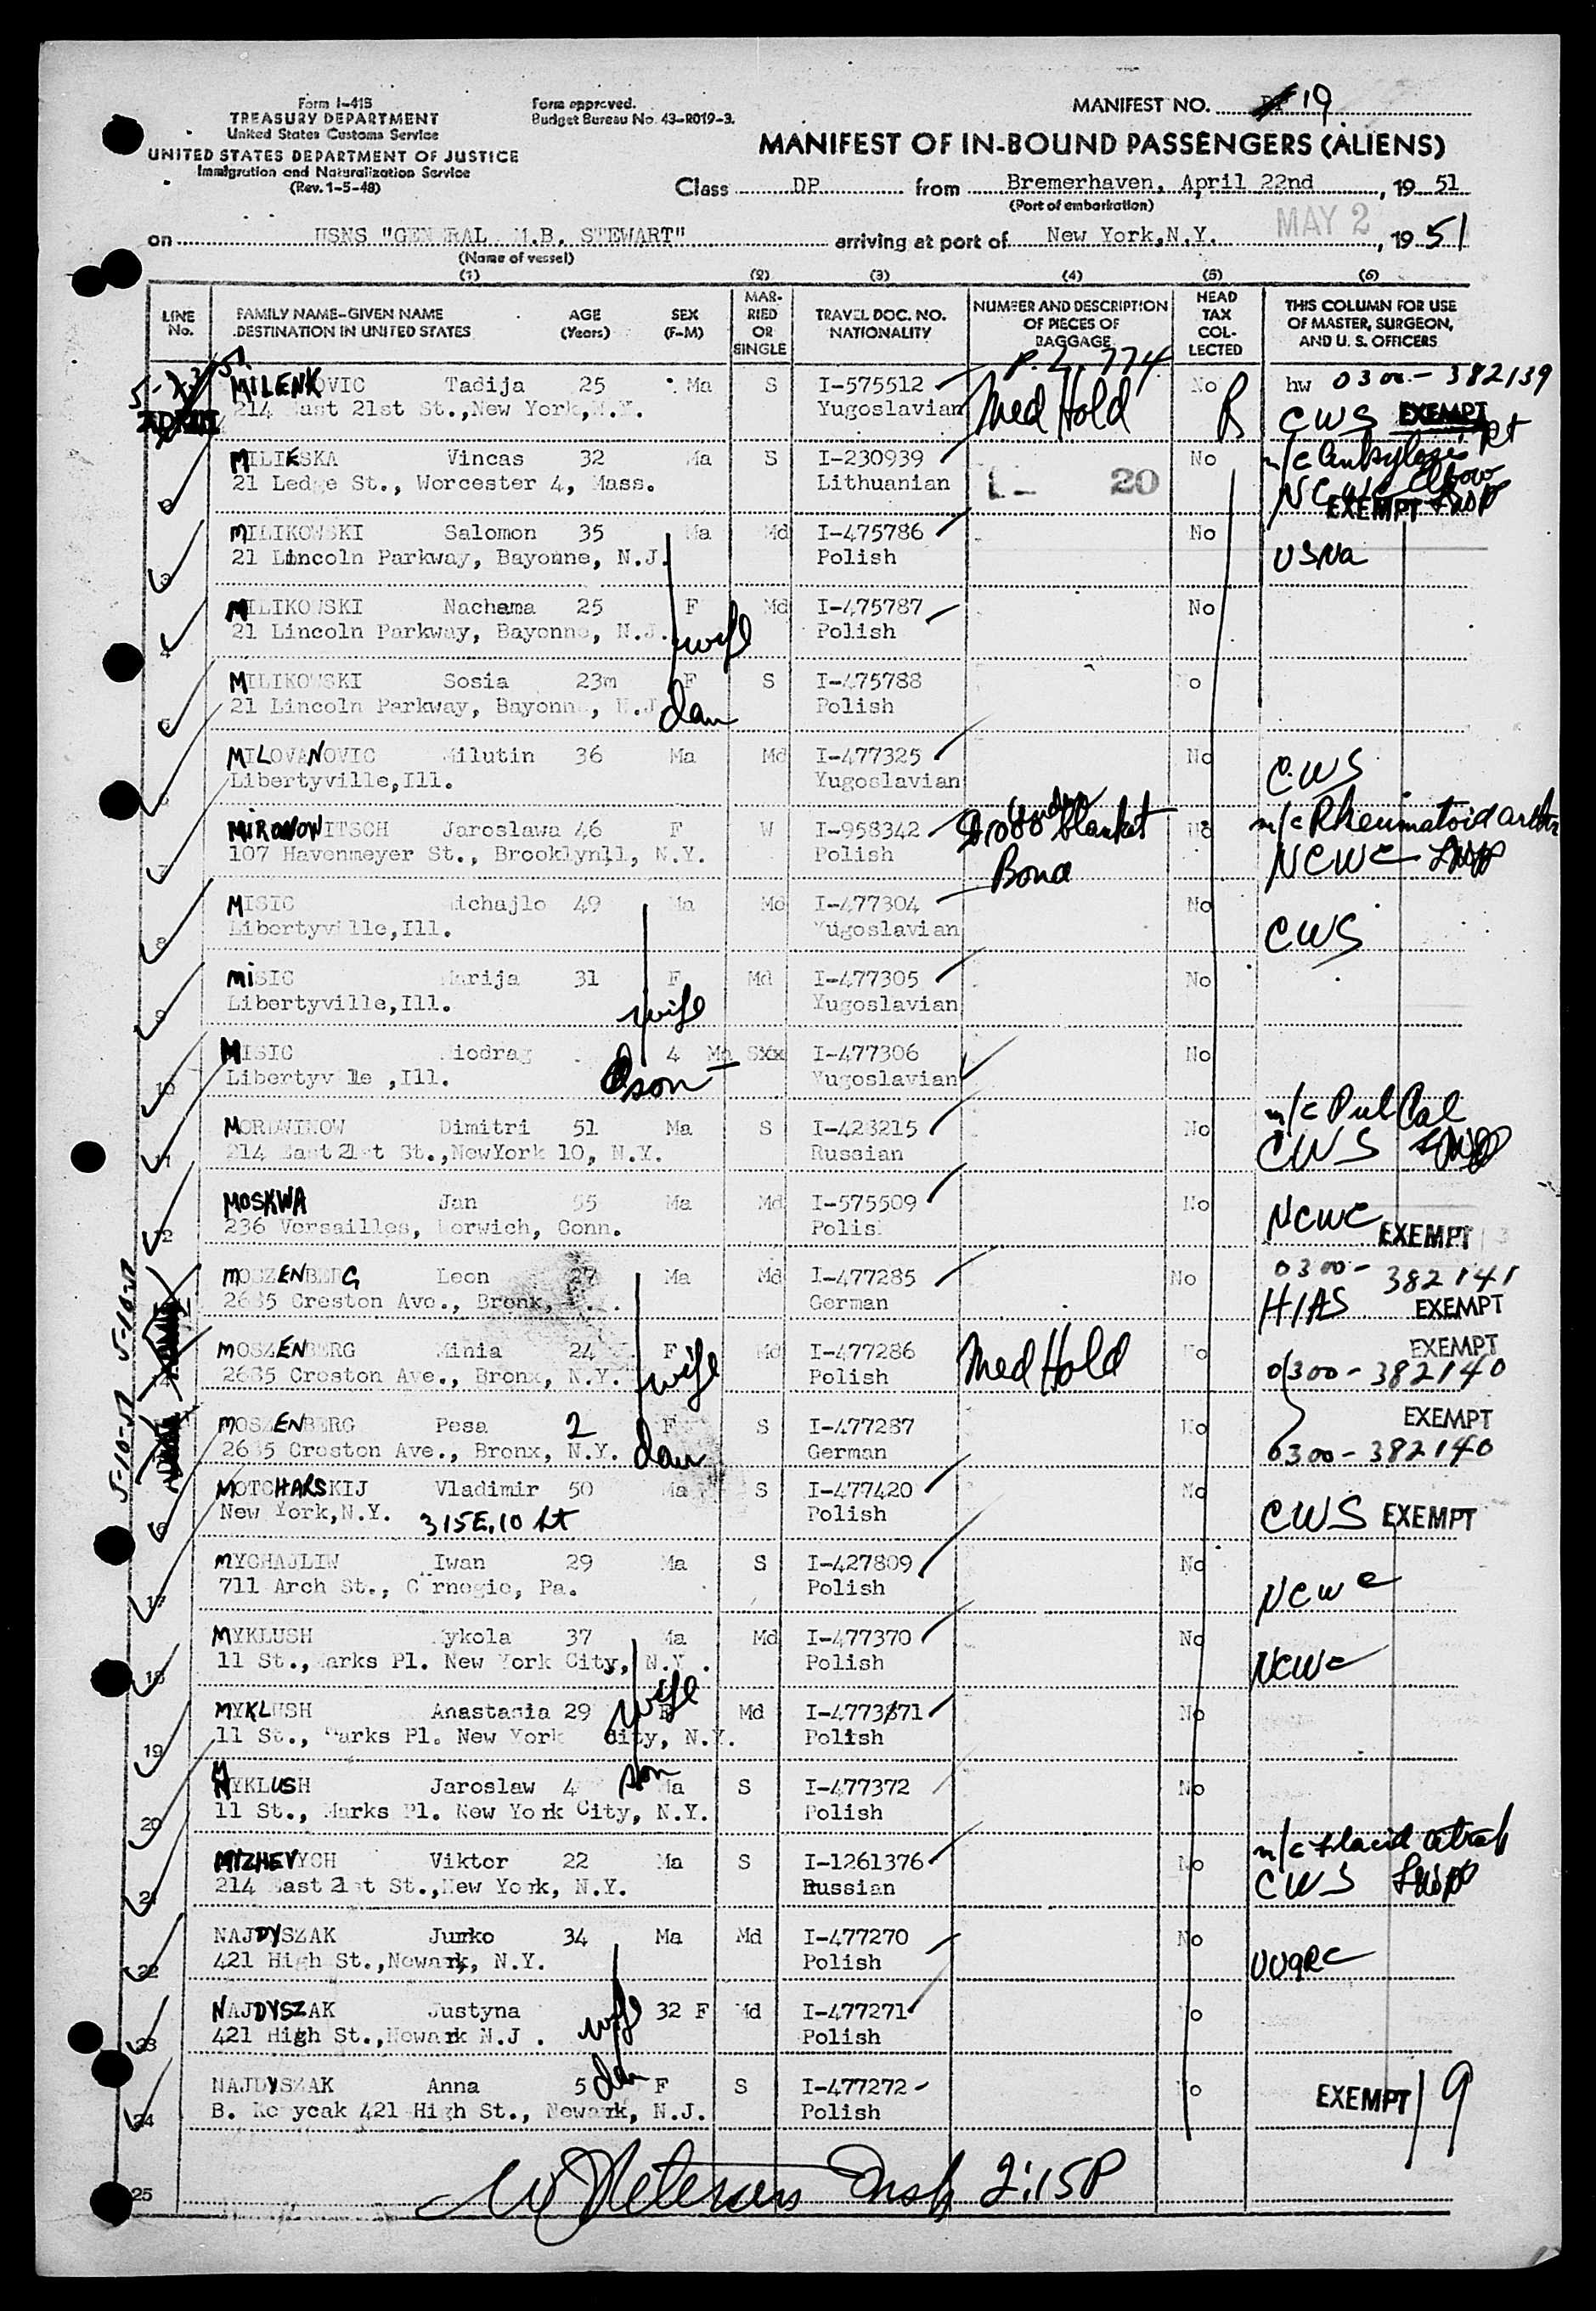 Form I-415
TREASURY DEPARTMENT
United States Customs Service
UNITED STATES DEPARTMENT OF JUSTICE
Immigration and Naturalization Service
(Rev. 1-5-48)
Form approved.
Budget Bureau No. 43-R019-3.
MANIFEST NO. 19
MANIFEST OF IN-BOUND PASSENGERS (ALIENS)
Class DP from Bremerhaven, April 22nd, 19 51
(Port of embarkation)
on USNS "GENERAL M.B. STEWART" arriving at port of New York,N.Y. MAY 2, 1951
(Name of vessel)
(1) (2) (3) (4) (5) (6)
LINE No. FAMILY NAME-GIVEN NAME DESTINATION IN UNITED STATES AGE (Years) SEX (F-M) MARRIED OR SINGLE TRAVEL DOC. NO. NATIONALITY NUMBER AND DESCRIPTION OF PIECES OF BAGGAGE HEAD TAX COLLECTED THIS COLUMN FOR USE OF MASTER, SURGEON, AND U. S. OFFICERS
P.L. 774
MILENKOVIC Tadija 25 Ma S I-575512 No hw 0300-382139
214 East 21st St.,New York,N.Y. Yugoslavian Med Hold R CWS EXEMPT
MILIESKA Vincas 32 Ma S I-230939 No n/c Ankylosis Rt Elbow
2 21 Ledge St., Worcester 4, Mass. Lithuanian 20 NCWC EXEMPT
MILIKOWSKI Salomon 35 Ma Md I-475786 No
3 21 Lincoln Parkway, Bayonne, N.J. Polish USNA
MILIKOWSKI Nachama 25 F Md I-475787 No
4 21 Lincoln Parkway, Bayonne, N.J. wife Polish
MILIKOWSKI Sosia 23m F S I-475788 No
5 21 Lincoln Parkway, Bayonne, N.J. dau Polish
MILOVANOVIC Milutin 36 Ma Md I-477325 No
6 Libertyville,Ill. Yugoslavian CWS
MIRONOWITSCH Jaroslawa 46 F W I-958342 $1000 under blanket Bond No n/c Rheumatoid arthr
7 107 Havenmeyer St., Brooklyn11, N.Y. Polish NCWC
MISIC Michajlo 49 Ma Md I-477304 No
8 Libertyville,Ill. Yugoslavian CWS
MISIC Marija 31 F Md I-477305 No
9 Libertyville,Ill. wife Yugoslavian
MISIC Miodrag 4 Ma Sxx I-477306 No
10 Libertyville ,Ill. son Yugoslavian
MORDWINOW Dimitri 51 Ma S I-423215 No n/c Pul Cal
11 214 East 21st St.,NewYork 10, N.Y. Russian CWS
MOSKWA Jan 55 Ma Md I-575509 No
12 236 Versailles, Norwich, Conn. Polish NCWC EXEMPT
MOSZENBERG Leon 27 Ma Md I-477285 No 0300-382141
2685 Creston Ave., Bronx, German HIAS EXEMPT
MOSZENBERG Minia 24 F Md I-477286 No EXEMPT
14 2685 Creston Ave., Bronx, N.Y. wife Polish Med Hold 0300-382140
MOSZENBERG Pesa 2 F S I-477287 No EXEMPT
2685 Creston Ave., Bronx, N.Y. dau German 0300-382140
5-10-51 5-10-51
MOTCHARSKIJ Vladimir 50 Ma S I-477420 No
16 New York,N.Y. 315E,10 St Polish CWS EXEMPT
MYCHAJLIW Iwan 29 Ma S I-427809 No
17 711 Arch St., Carnegie, Pa. Polish NCWC
MYKLUSH Mykola 37 Ma Md I-477370 No
18 11 St.,Marks Pl. New York City, N.Y. Polish NCWC
MYKLUSH Anastasia 29 wife F Md I-4773/71 No
19 11 St., Marks Pl. New York City, N.Y. Polish
MYKLUSH Jaroslaw 4 son Ma S I-477372 No
20 11 St., Marks Pl. New York City, N.Y. Polish
MYZHEVYCH Viktor 22 Ma S I-1261376 No
21 214 East 21st St.,New York, N.Y. Russian CWS
NAJDYSZAK Jurko 34 Ma Md I-477270 No
22 421 High St.,Newark, N.Y. Polish UUARC
NAJDYSZAK Justyna wife 32 F Md I-477271 No
23 421 High St.,Newark N.J . Polish
NAJDYSZAK Anna 5 dau F S I-477272 No
24 421 High St., Newark, N.J. Polish EXEMPT 9
25 Insp 2:15P